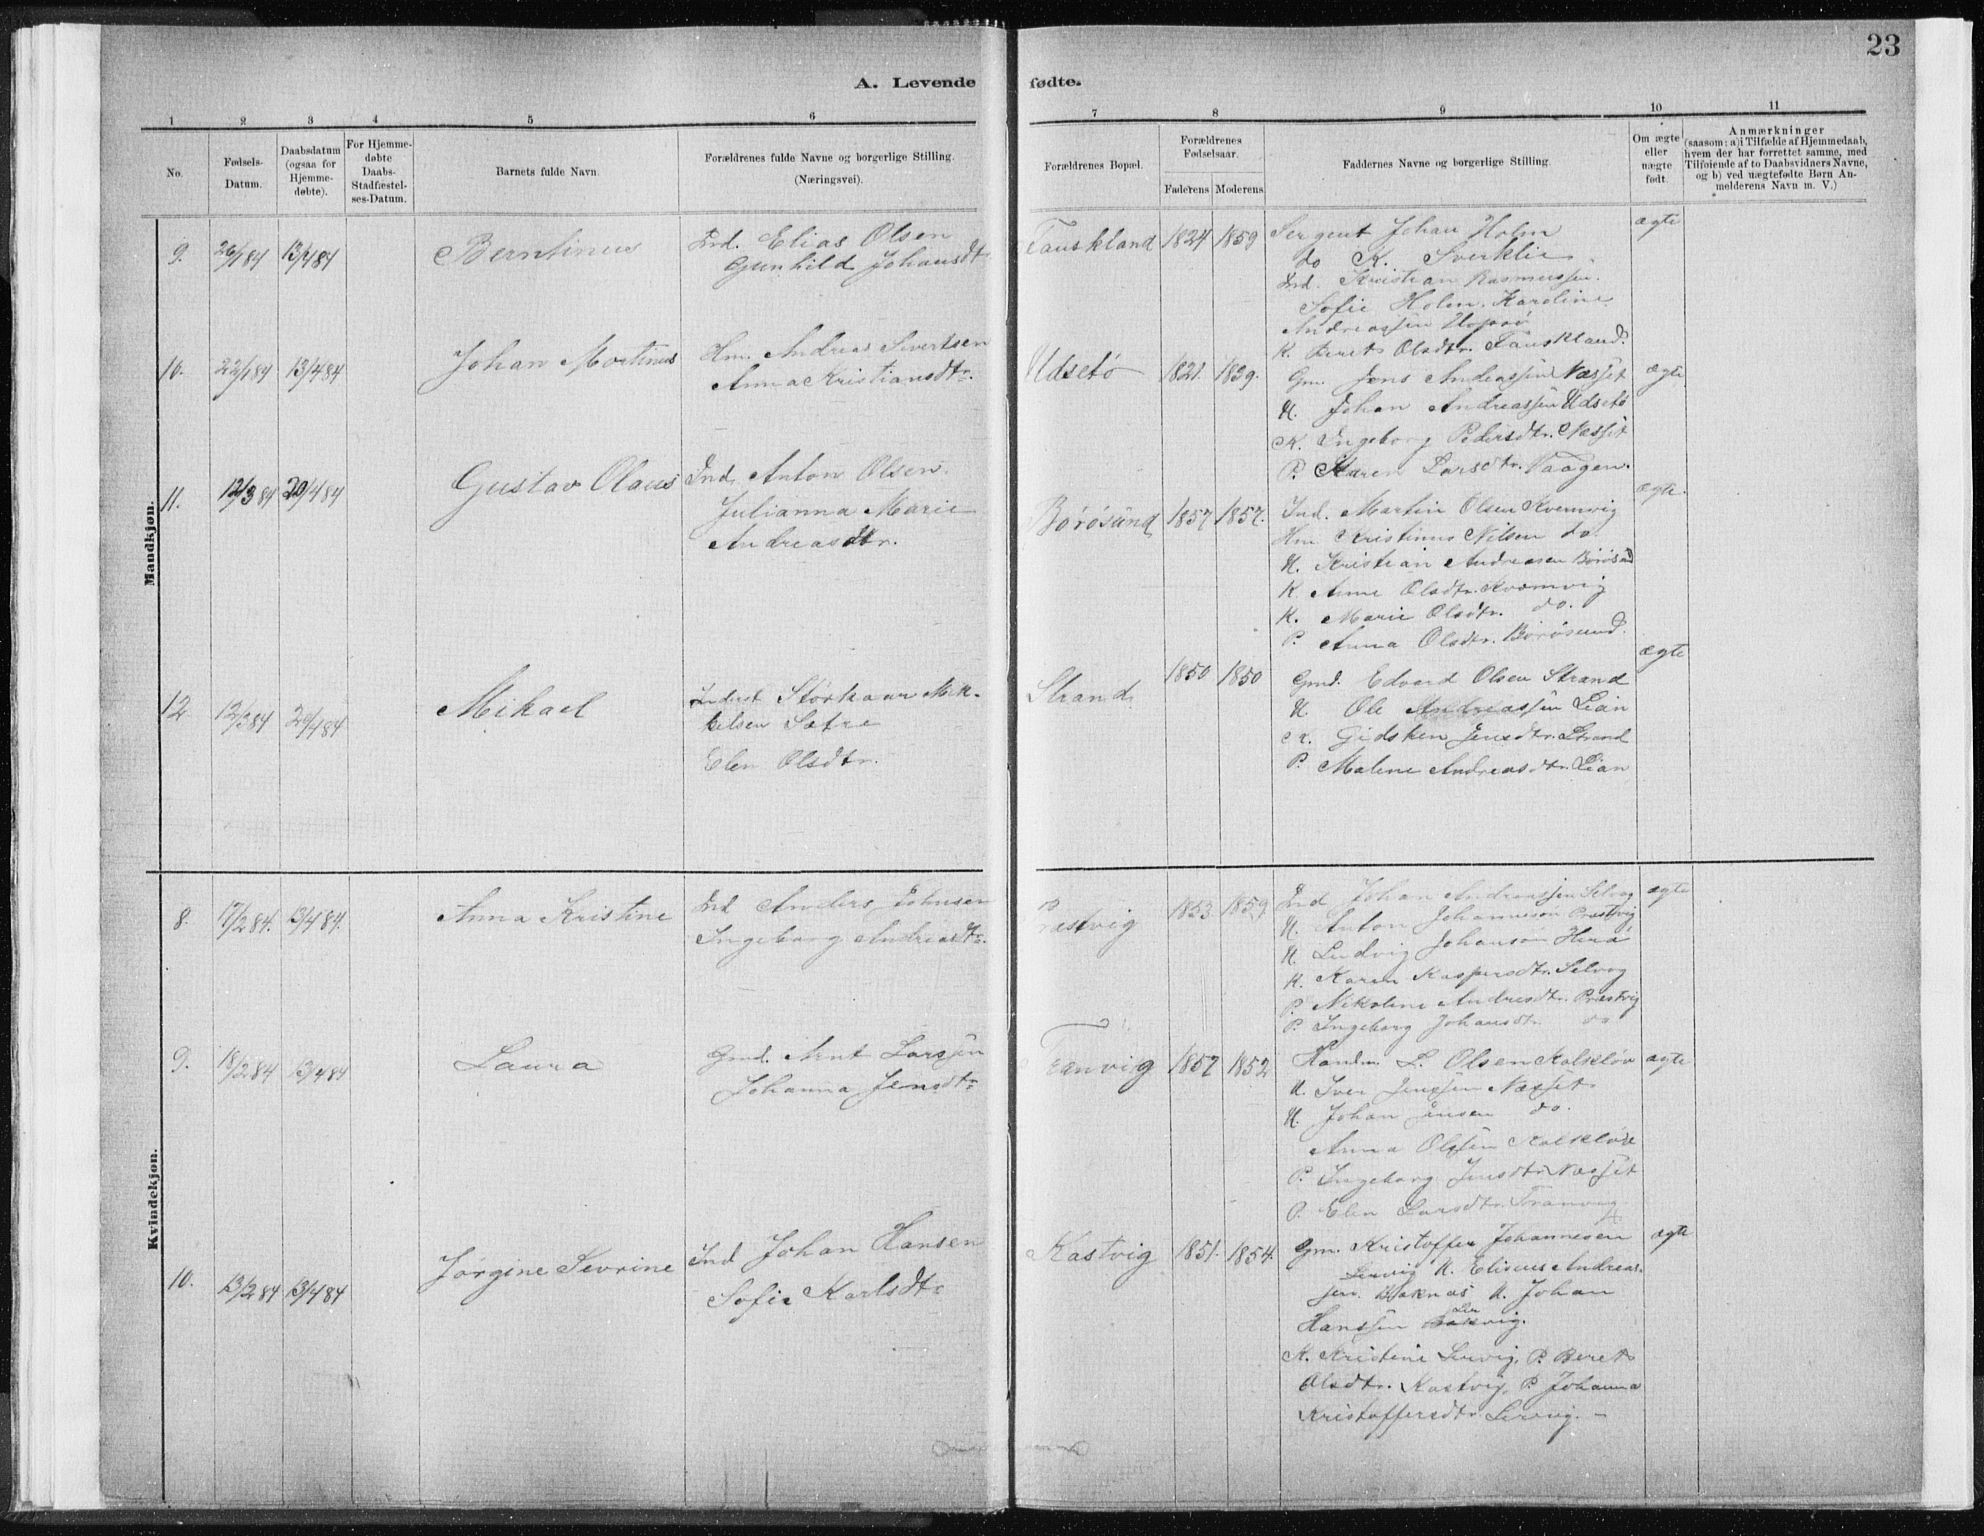 23
A. Levende fødte.
1 2 3 4 5 6 7 8 9 10 11
No.
Fødsels-Datum.
Daabsdatum (ogsaa for Hjemme-døbte).
For Hjemme-døbte Daabs-Stadfæstel-ses-Datum.
Barnets fulde Navn.
Forældrenes fulde Navne og borgerlige Stilling.
(Næringsvei).
Forældrenes Bopæl.
Forældrenes Fødselsaar.
Faderens Moderens
Faddernes Navne og borgerlige Stilling.
Om ægte eller uægte født.
Anmærkninger
(saasom: a) i Tilfælde af Hjemmedaab,
hvem der har forrettet samme, med
Tilføiende af to Daabsvidners Navne,
og b) ved uægtefødte Børn An-
melderens Navn m. V.)
Mandkjøn.
9. 26/1 84 13/4 84 Berntinus Ind. Elias Olsen
Gunhild Johansdtr
Fauskland 1824 1859 Sergent Johan Holm ægte
do K. Sverklie
Ind. Kristian Rasmussen
Sofie Holm. Karoline
Andreassen
K. Beret Olsdtr. Fauskland.
10. 22/1 84 13/4 84 Johan Mortinus Hm. Andreas Sivertsen
Anna Kristiansdtr.
Udsetø 1821. 1839. Gm. Jens Andreassen Næsset ægte
U. Johan Andreassen Udsetø
K. Ingeborg Pedersdtr. Næsset
P. Karen Larsdtr. Vaagen.
11. 12/3 84 20/4 84 Gustav Olaus Ind. Anton Olsen
Julianna Marie
Andreasdtr.
Børøsund 1857 1857. Ind. Martin Olsen Kvernvig ægte.
Hm Kristinus Nilsen do.
U. Kristian Andreasen Børøsund
K. Anne Olsdtr. Kvamvig
K. Marie Olsdtr. do.
P. Anna Olsdtr. Børøsund.
12. 12/3 84 20/4 84 Mikael Inderst Størkaar Mik-
kelsen Sætre
Elen Olsdtr.
Strand 1850 1850 Gmd. Edvard Olsen Strand ægte
U. Ole Andreassen Lian
K. Gidsken Jensdtr. Strand
P. Malene Andreasdtr. Lian
Kvindekjøn.
8. 17/2 84. 13/4 84. Anna Kristine Ind Anders Johnsen
Ingeborg Andreasdtr.
Præstvig 1853. 1859. Ind Johan Andreassen Selvog ægte
U. Anton Johannesen Præstvig
U. Ludvig Johansen
K. Karen Kaspersdtr. Selvog
P. Nikoline Andresdtr. Præstvig
P. Ingeborg Johansdtr. do
9. 18/2 84 13/4 84 Laura Gmd. Arnt Larssen
Johanna Jensdtr
Tranvig 1857 1852 Handm. L. Olsen Kalkløv ægte
U. Iver Jenssen Næsset
U. Johan Jensen do.
Anna Olssen
P. Ingeborg Jensdtr. Næsset
P. Elen Larsdtr. Tranvig
10. 13/2 84 13/4 84 Jørgine Sevrine Ind Johan Hansen
Sofie Karlsdtr
Kastvig 1851. 1854. Gm. Kristoffer Johannesen ægte
Lervig U. Eliseus Andreas-
sen. U. Johan
Hanssen
K. Kristine Lervig. P. Beret
Olsdtr. Kastvig, P. Johanna
Kristoffersdtr Lervig. -